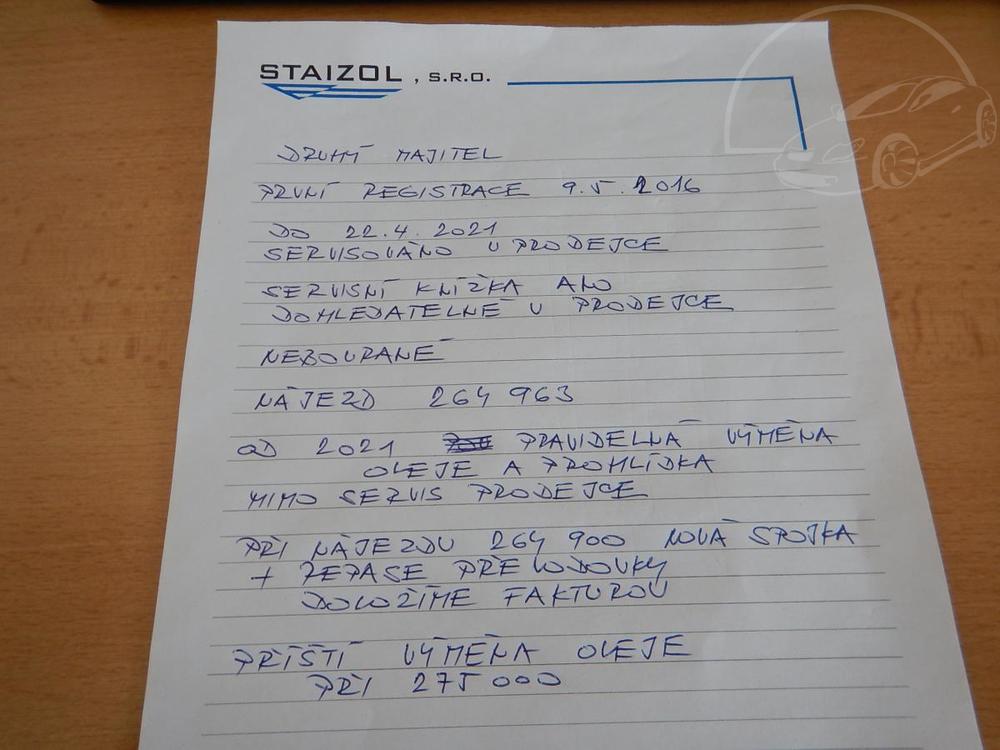 STAIZOL , S.R.O.
DRUHÝ MAJITEL
PRVNÍ REGISTRACE 9.5.2016
DO 22.4.2021
SERVISOVÁNO U PRODEJCE
SERVISNÍ KNÍŽKA ANO
DOHLEDATELNÉ U PRODEJCE
NEBOURANÉ
NÁJEZD 264 963
OD 2021 PRAVIDELNÁ VÝMĚNA
OLEJE A PROHLÍDKA
MIMO SERVIS PRODEJCE
PŘI NÁJEZDU 264 900 NOVÁ SPOJKA
+ REPASE PŘEVODOVKY
DOLOŽÍME FAKTUROU
PŘÍŠTÍ VÝMĚNA OLEJE
PŘI 275 000